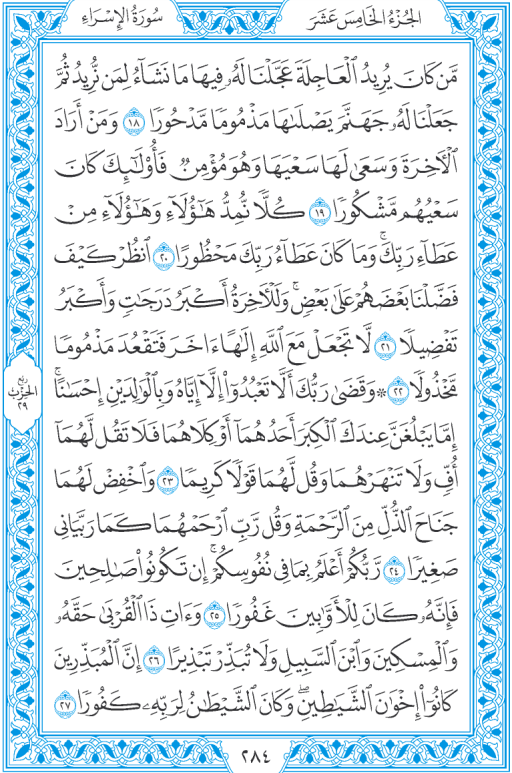 سُورَةُ الإِسْرَاءِ
الجُزْءُ الخَامِسَ عَشَرَ
مَّن كَانَ يُرِيدُ ٱلْعَاجِلَةَ عَجَّلْنَا لَهُۥ فِيهَا مَا نَشَآءُ لِمَن نُّرِيدُ ثُمَّ
جَعَلْنَا لَهُۥ جَهَنَّمَ يَصْلَىٰهَا مَذْمُومًا مَّدْحُورًا ١٨ وَمَنْ أَرَادَ
ٱلْأَخِرَةَ وَسَعَىٰ لَهَا سَعْيَهَا وَهُوَ مُؤْمِنٌ فَأُو۟لَـٰٓئِكَ كَانَ
سَعْيُهُم مَّشْكُورًا ١٩ كُلًّا نُّمِدُّ هَـٰٓؤُلَآءِ وَهَـٰٓؤُلَآءِ مِنْ
عَطَآءِ رَبِّكَ ۚ وَمَا كَانَ عَطَآءُ رَبِّكَ مَحْظُورًا ٢٠ ٱنظُرْ كَيْفَ
فَضَّلْنَا بَعْضَهُمْ عَلَىٰ بَعْضٍ ۚ وَلَلْأَخِرَةُ أَكْبَرُ دَرَجَـٰتٍ وَأَكْبَرُ
تَفْضِيلًا ٢١ لَّا تَجْعَلْ مَعَ ٱللَّهِ إِلَـٰهًا ءَاخَرَ فَتَقْعُدَ مَذْمُومًا
مَّخْذُولًا ٢٢ ۞ وَقَضَىٰ رَبُّكَ أَلَّا تَعْبُدُوٓا۟ إِلَّآ إِيَّاهُ وَبِٱلْوَٰلِدَيْنِ إِحْسَـٰنًا ۚ
إِمَّا يَبْلُغَنَّ عِندَكَ ٱلْكِبَرَ أَحَدُهُمَآ أَوْ كِلَاهُمَا فَلَا تَقُل لَّهُمَآ
أُفٍّ وَلَا تَنْهَرْهُمَا وَقُل لَّهُمَا قَوْلًا كَرِيمًا ٢٣ وَٱخْفِضْ لَهُمَا
جَنَاحَ ٱلذُّلِّ مِنَ ٱلرَّحْمَةِ وَقُل رَّبِّ ٱرْحَمْهُمَا كَمَا رَبَّيَانِى
صَغِيرًا ٢٤ رَّبُّكُمْ أَعْلَمُ بِمَا فِى نُفُوسِكُمْ ۚ إِن تَكُونُوا۟ صَـٰلِحِينَ
فَإِنَّهُۥ كَانَ لِلْأَوَّٰبِينَ غَفُورًا ٢٥ وَءَاتِ ذَا ٱلْقُرْبَىٰ حَقَّهُۥ
وَٱلْمِسْكِينَ وَٱبْنَ ٱلسَّبِيلِ وَلَا تُبَذِّرْ تَبْذِيرًا ٢٦ إِنَّ ٱلْمُبَذِّرِينَ
كَانُوٓا۟ إِخْوَٰنَ ٱلشَّيَـٰطِينِ ۖ وَكَانَ ٱلشَّيْطَـٰنُ لِرَبِّهِۦ كَفُورًا ٢٧
ربع
الحزب
٢٩
٢٨٤